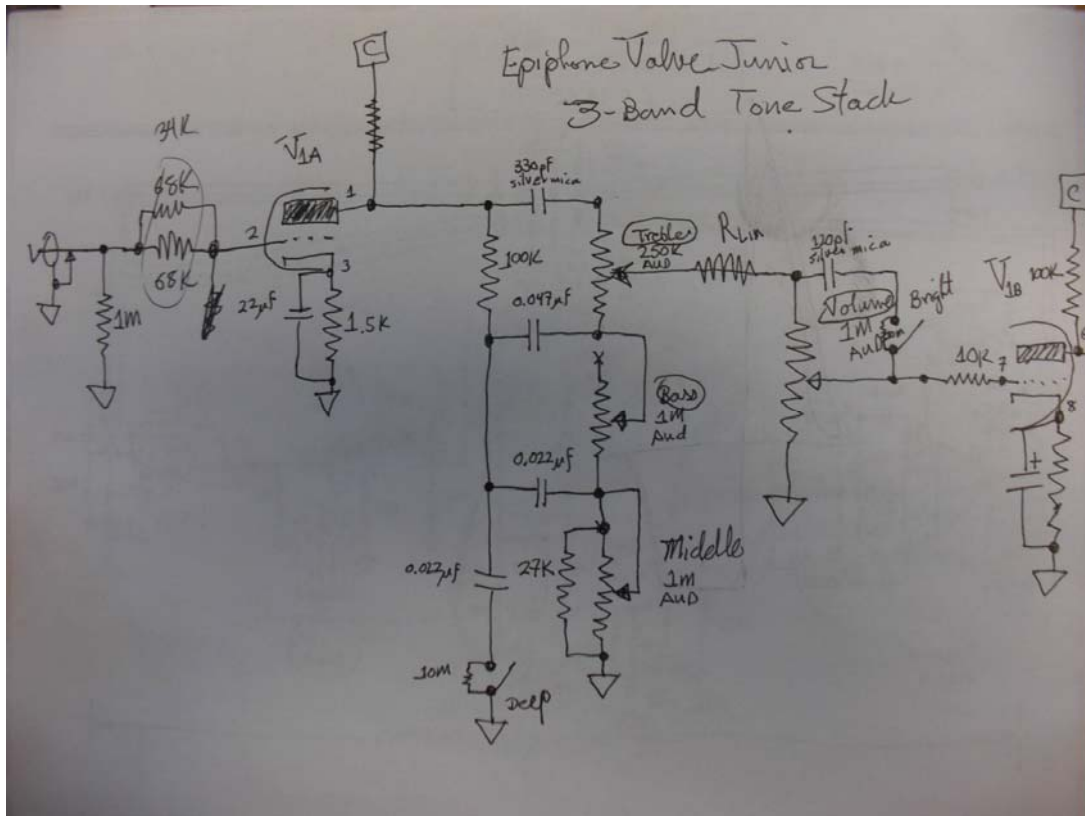 Epiphone Valve Junior
3-Band Tone Stack
C
34K
68K
68K
1M
V1A
1
2
3
22µF
1.5K
330pF
silver mica
100K
0.047µF
Treble
250K
AUD
RLin
120pF
silver mica
Volume
1M
AUD
Bright
Bass
1M
Aud
0.022µF
0.022µF
27K
Middle
1M
AUD
10M
Deep
C
V1B
100K
10K
7
8
+